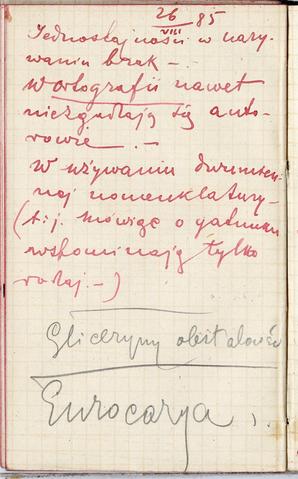 26/VIII 85
Jednostajności w nazy-
waniu brak –
w ortografii nawet
niezgadzają się auto-
rowie –. –
w używaniu dwuimien-
nej nomenklatury –
(t. j. mówiąc o gatunku
wspominają tylko
rodzaj. –)
Gliceryny obstalować
Eurocarya